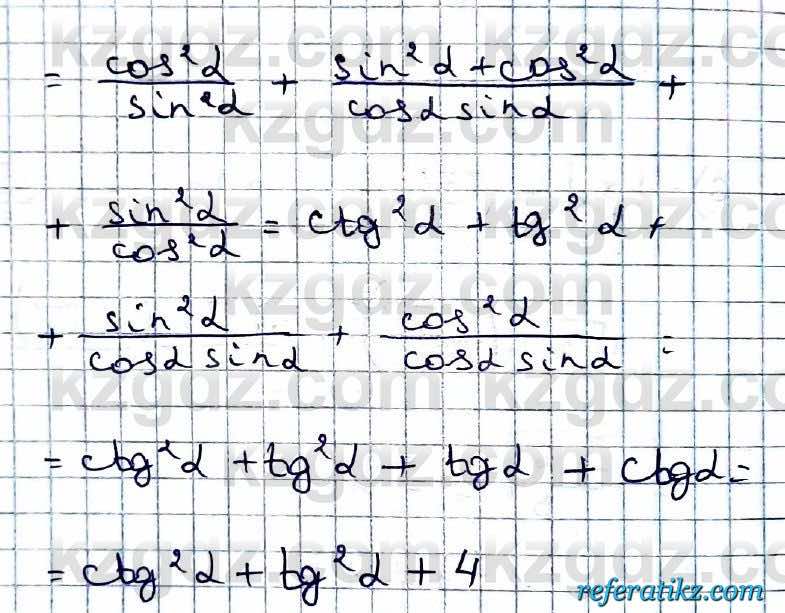 = cos²α/sin²α + (sin²α + cos²α)/(cosα sinα) +
+ sin²α/cos²α = ctg²α + tg²α +
+ sin²α/(cosα sinα) + cos²α/(cosα sinα) =
= ctg²α + tg²α + tgα + ctgα =
= ctg²α + tg²α + 4
kzgdz.com
referatikz.com